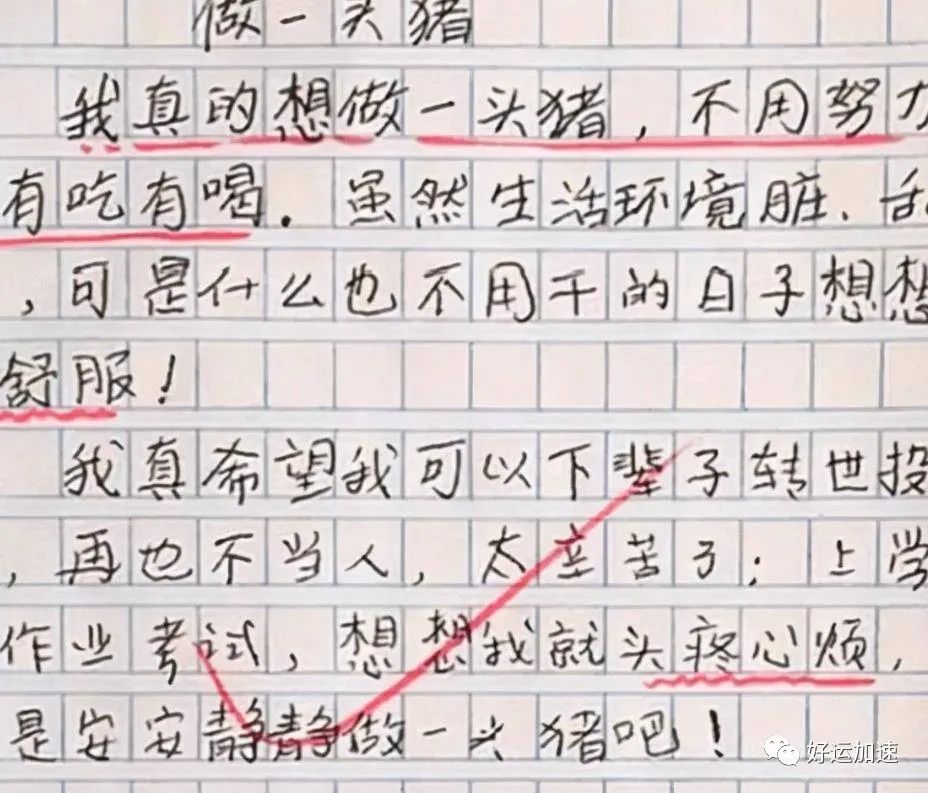 做一头猪
我真的想做一头猪，不用努力
有吃有喝。虽然生活环境脏、
，可是什么也不用干的日子想想
舒服！
我真希望我可以下辈子转世投
，再也不当人，太辛苦了；上学
作业考试，想想我就头疼心烦，
是安安静静做一头猪吧！
好运加速